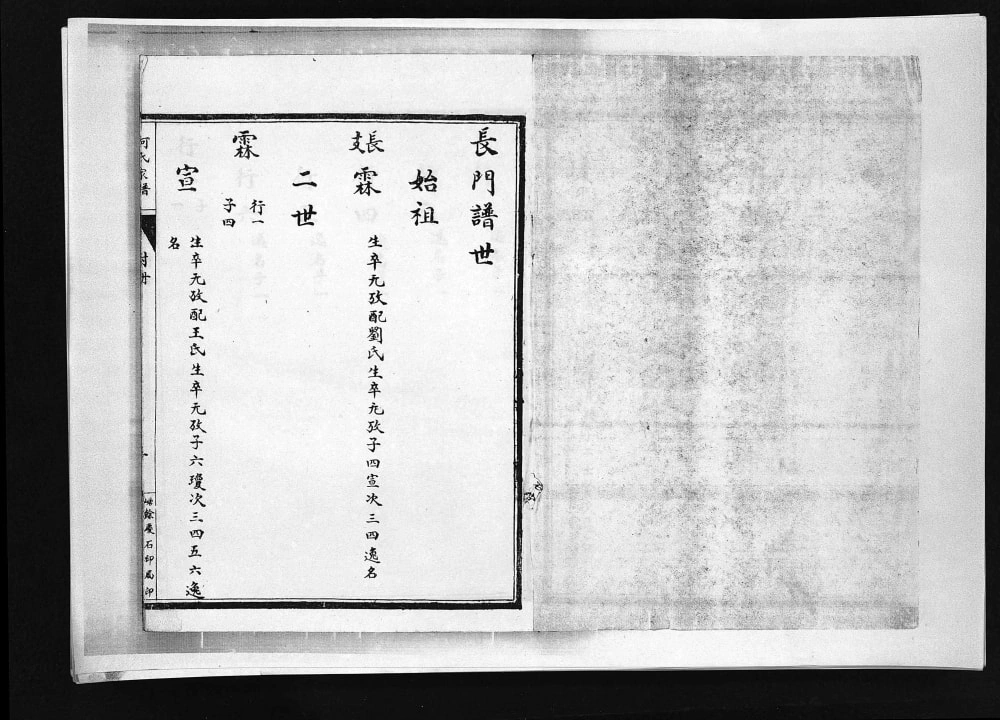 長門譜世
始祖
長支 霖 生卒元攷配劉氏生卒元攷子四宣次三四逸名
二世
霖 行一
子四
宣 生卒元攷配王氏生卒元攷子六瓊次三四五六逸
名
何氏家譜
石印局印